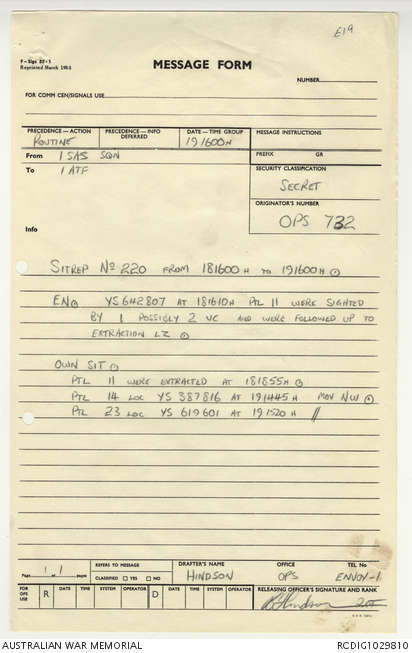 E19
F-Sigs 89-1
Reprinted March 1965
MESSAGE FORM
NUMBER
FOR COMM CEN/SIGNALS USE
PRECEDENCE—ACTION
ROUTINE
PRECEDENCE—INFO
DEFERRED
DATE—TIME GROUP
191600H
MESSAGE INSTRUCTIONS
From 1 SAS SQN
PREFIX GR
To 1 ATF
SECURITY CLASSIFICATION
SECRET
ORIGINATOR'S NUMBER
OPS 732
Info
SITREP No 220 FROM 181600 H TO 191600H ⊙
EN⊙ YS642807 AT 181610H PTL 11 WERE SIGHTED
BY 1 POSSIBLY 2 VC AND WERE FOLLOWED UP TO
EXTRACTION LZ ⊙
OWN SIT ⊙
PTL 11 WERE EXTRACTED AT 181855H ⊙
PTL 14 LOC YS 387816 AT 191445H MOV NW ⊙
PTL 23 LOC YS 619601 AT 191520 H //
Page 1 of 1 pages
REFERS TO MESSAGE
CLASSIFIED YES NO
DRAFTER'S NAME
HINDSON
OFFICE
OPS
TEL No
ENVOY-1
FOR OPR USE
R
DATE TIME SYSTEM OPERATOR
D
DATE TIME SYSTEM OPERATOR
RELEASING OFFICER'S SIGNATURE AND RANK
AUSTRALIAN WAR MEMORIAL
RCDIG1029810